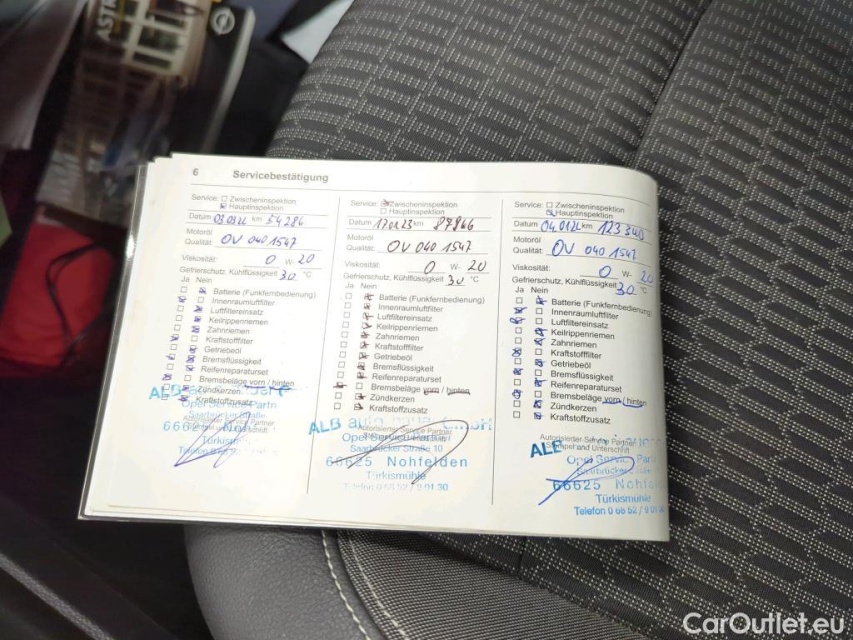 ASTR
6 Servicebestätigung
Service: Zwischeninspektion
Hauptinspektion
Datum 03.03.22 km 54 286
Motoröl
Qualität: OV 040 1547
Viskosität: 0 W- 20
Gefrierschutz, Kühlflüssigkeit 30 °C
Ja Nein
Batterie (Funkfernbedienung)
Innenraumluftfilter
Luftfiltereinsatz
Keilrippenriemen
Zahnriemen
Kraftstofffilter
Getriebeöl
Bremsflüssigkeit
Reifenreparaturset
Bremsbeläge vorn / hinten
Zündkerzen
Kraftstoffzusatz
Opel Service Partn
Saarbrücker Straße
Türkismü
Telefon
Service: Zwischeninspektion
Hauptinspektion
Datum 17.01.23 km 87846
Motoröl
Qualität: OV 040 1547
Viskosität: 0 W- 20
Gefrierschutz, Kühlflüssigkeit 30 °C
Ja Nein
Batterie (Funkfernbedienung)
Innenraumluftfilter
Luftfiltereinsatz
Keilrippenriemen
Zahnriemen
Kraftstofffilter
Getriebeöl
Bremsflüssigkeit
Reifenreparaturset
Bremsbeläge vorn / hinten
Zündkerzen
Kraftstoffzusatz
ALB auto haus GmbH
Autorisierter Service Partner
Opel Service Partner
Saarbrücker Straße 10
66625 Nohfelden
Türkismühle
Telefon 0 68 52 / 9 01 30
Service: Zwischeninspektion
Hauptinspektion
Datum 04.01.24 km 123 340
Motoröl
Qualität: OV 040 1547
Viskosität: 0 W- 20
Gefrierschutz, Kühlflüssigkeit 30 °C
Ja Nein
Batterie (Funkfernbedienung)
Innenraumluftfilter
Luftfiltereinsatz
Keilrippenriemen
Zahnriemen
Kraftstofffilter
Getriebeöl
Bremsflüssigkeit
Reifenreparaturset
Bremsbeläge vorn / hinten
Zündkerzen
Kraftstoffzusatz
Autorisierter Service Partner
Stempel und Unterschrift
Opel Service Part
Saarbrücker
66625 Nohfel
Türkismühle
Telefon 0 68 52 / 9 01 30
CarOutlet.eu